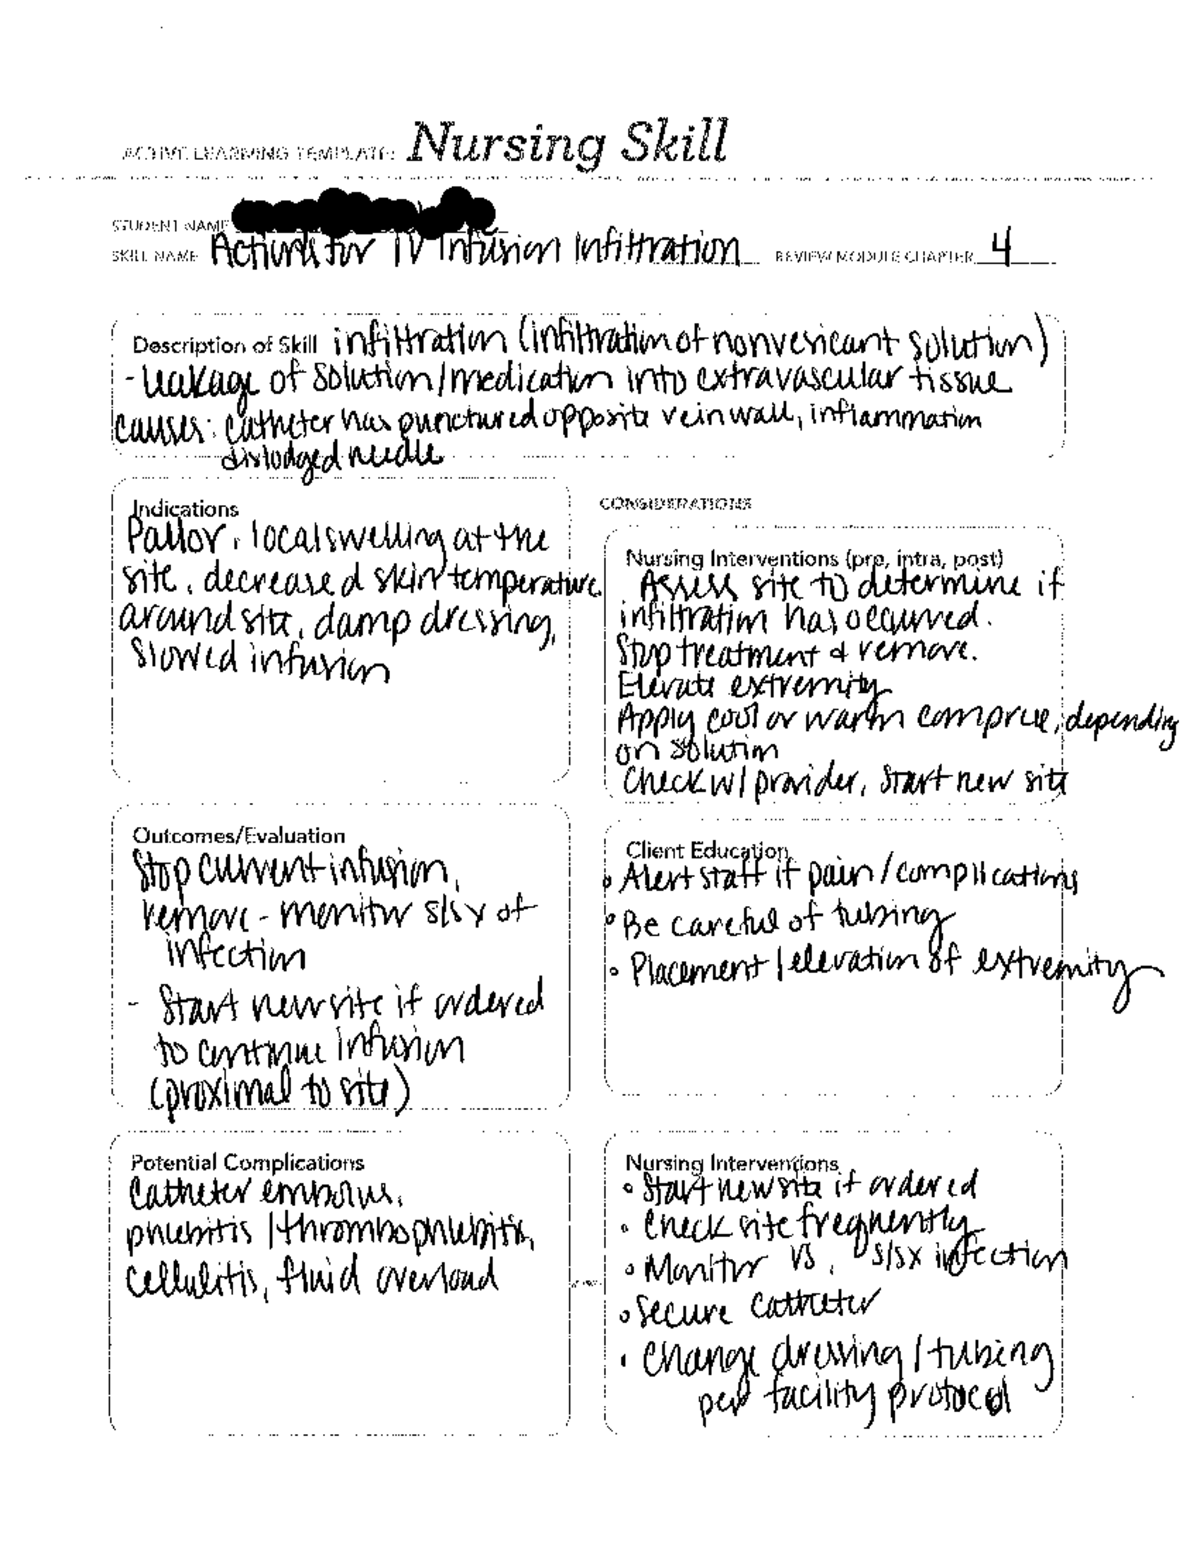 ACTIVE LEARNING TEMPLATE: Nursing Skill
STUDENT NAME
SKILL NAME Actions for IV Infusion Infiltration REVIEW MODULE CHAPTER 4
Description of Skill infiltration (infiltration of nonvesicant solution)
- Leakage of solution/medication into extravascular tissue
causes: catheter has punctured opposite vein wall, inflammation
dislodged needle
Indications
Pallor, local swelling at the
site, decreased skin temperature
around site, damp dressing,
slowed infusion
CONSIDERATIONS
Nursing Interventions (pre, intra, post)
Assess site to determine if
infiltration has occurred.
Stop treatment & remove.
Elevate extremity
Apply cool or warm compress, depending
on solution
Check w/ provider, start new site
Outcomes/Evaluation
Stop current infusion,
remove - monitor s/sx of
infection
- Start new site if ordered
to continue infusion
(proximal to site)
Client Education
• Alert staff if pain/complications
• Be careful of tubing
• Placement/elevation of extremity
Potential Complications
Catheter embolus,
phlebitis/thrombophlebitis,
cellulitis, fluid overload
Nursing Interventions
• Start new site if ordered
• Check site frequently
• Monitor VS, s/sx infection
• Secure catheter
• Change dressing/tubing
per facility protocol